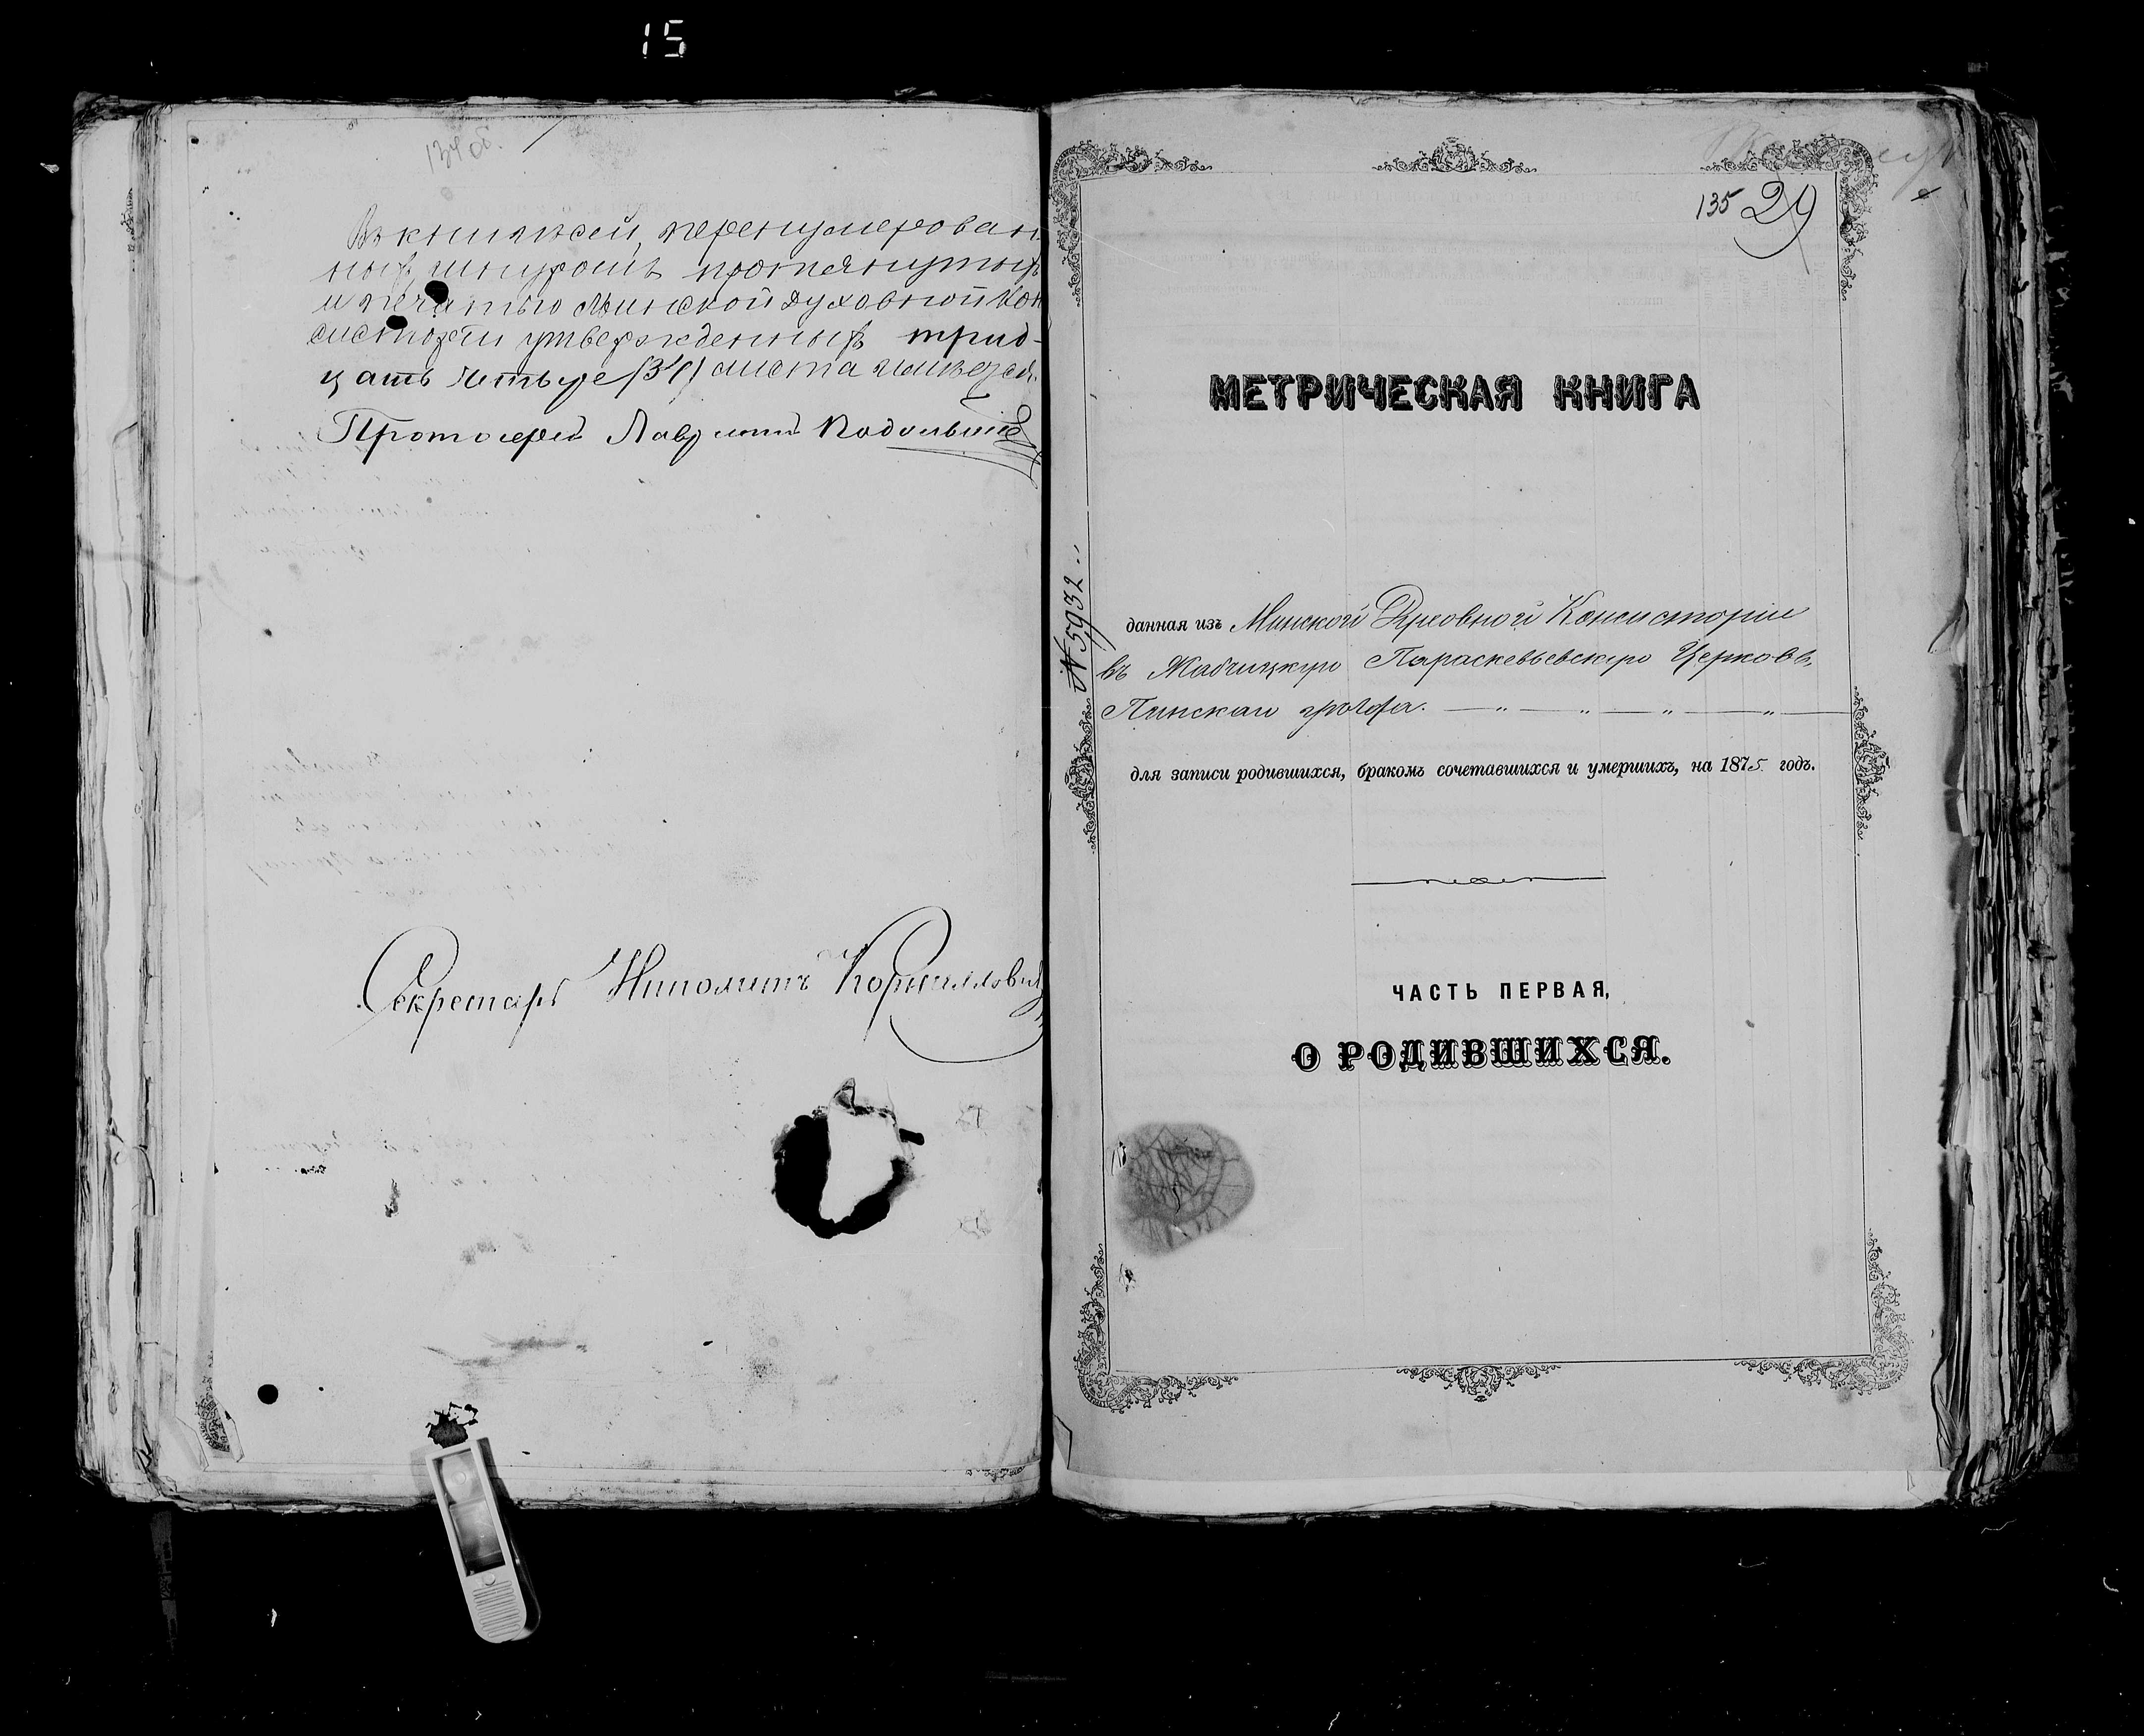 15
134 об.
Въ книгѣ сей, перенумерован-
ныхъ, шнуромъ протянутыхъ
и печатью Минской Духовной Кон
систоріи утвержденныхъ трид-
цать четыре (34) листа
Протоіерей
Секретарь Ипполитъ Корнилович
135 29
МЕТРИЧЕСКАЯ КНИГА
№ 5932
данная изъ Минской Духовной Консисторіи
въ Жабчицкую Параскевьевскую Церковь,
Пинскаго уѣзда.
для записи родившихся, бракомъ сочетавшихся и умершихъ, на 1875 годъ.
ЧАСТЬ ПЕРВАЯ,
О РОДИВШИХСЯ.